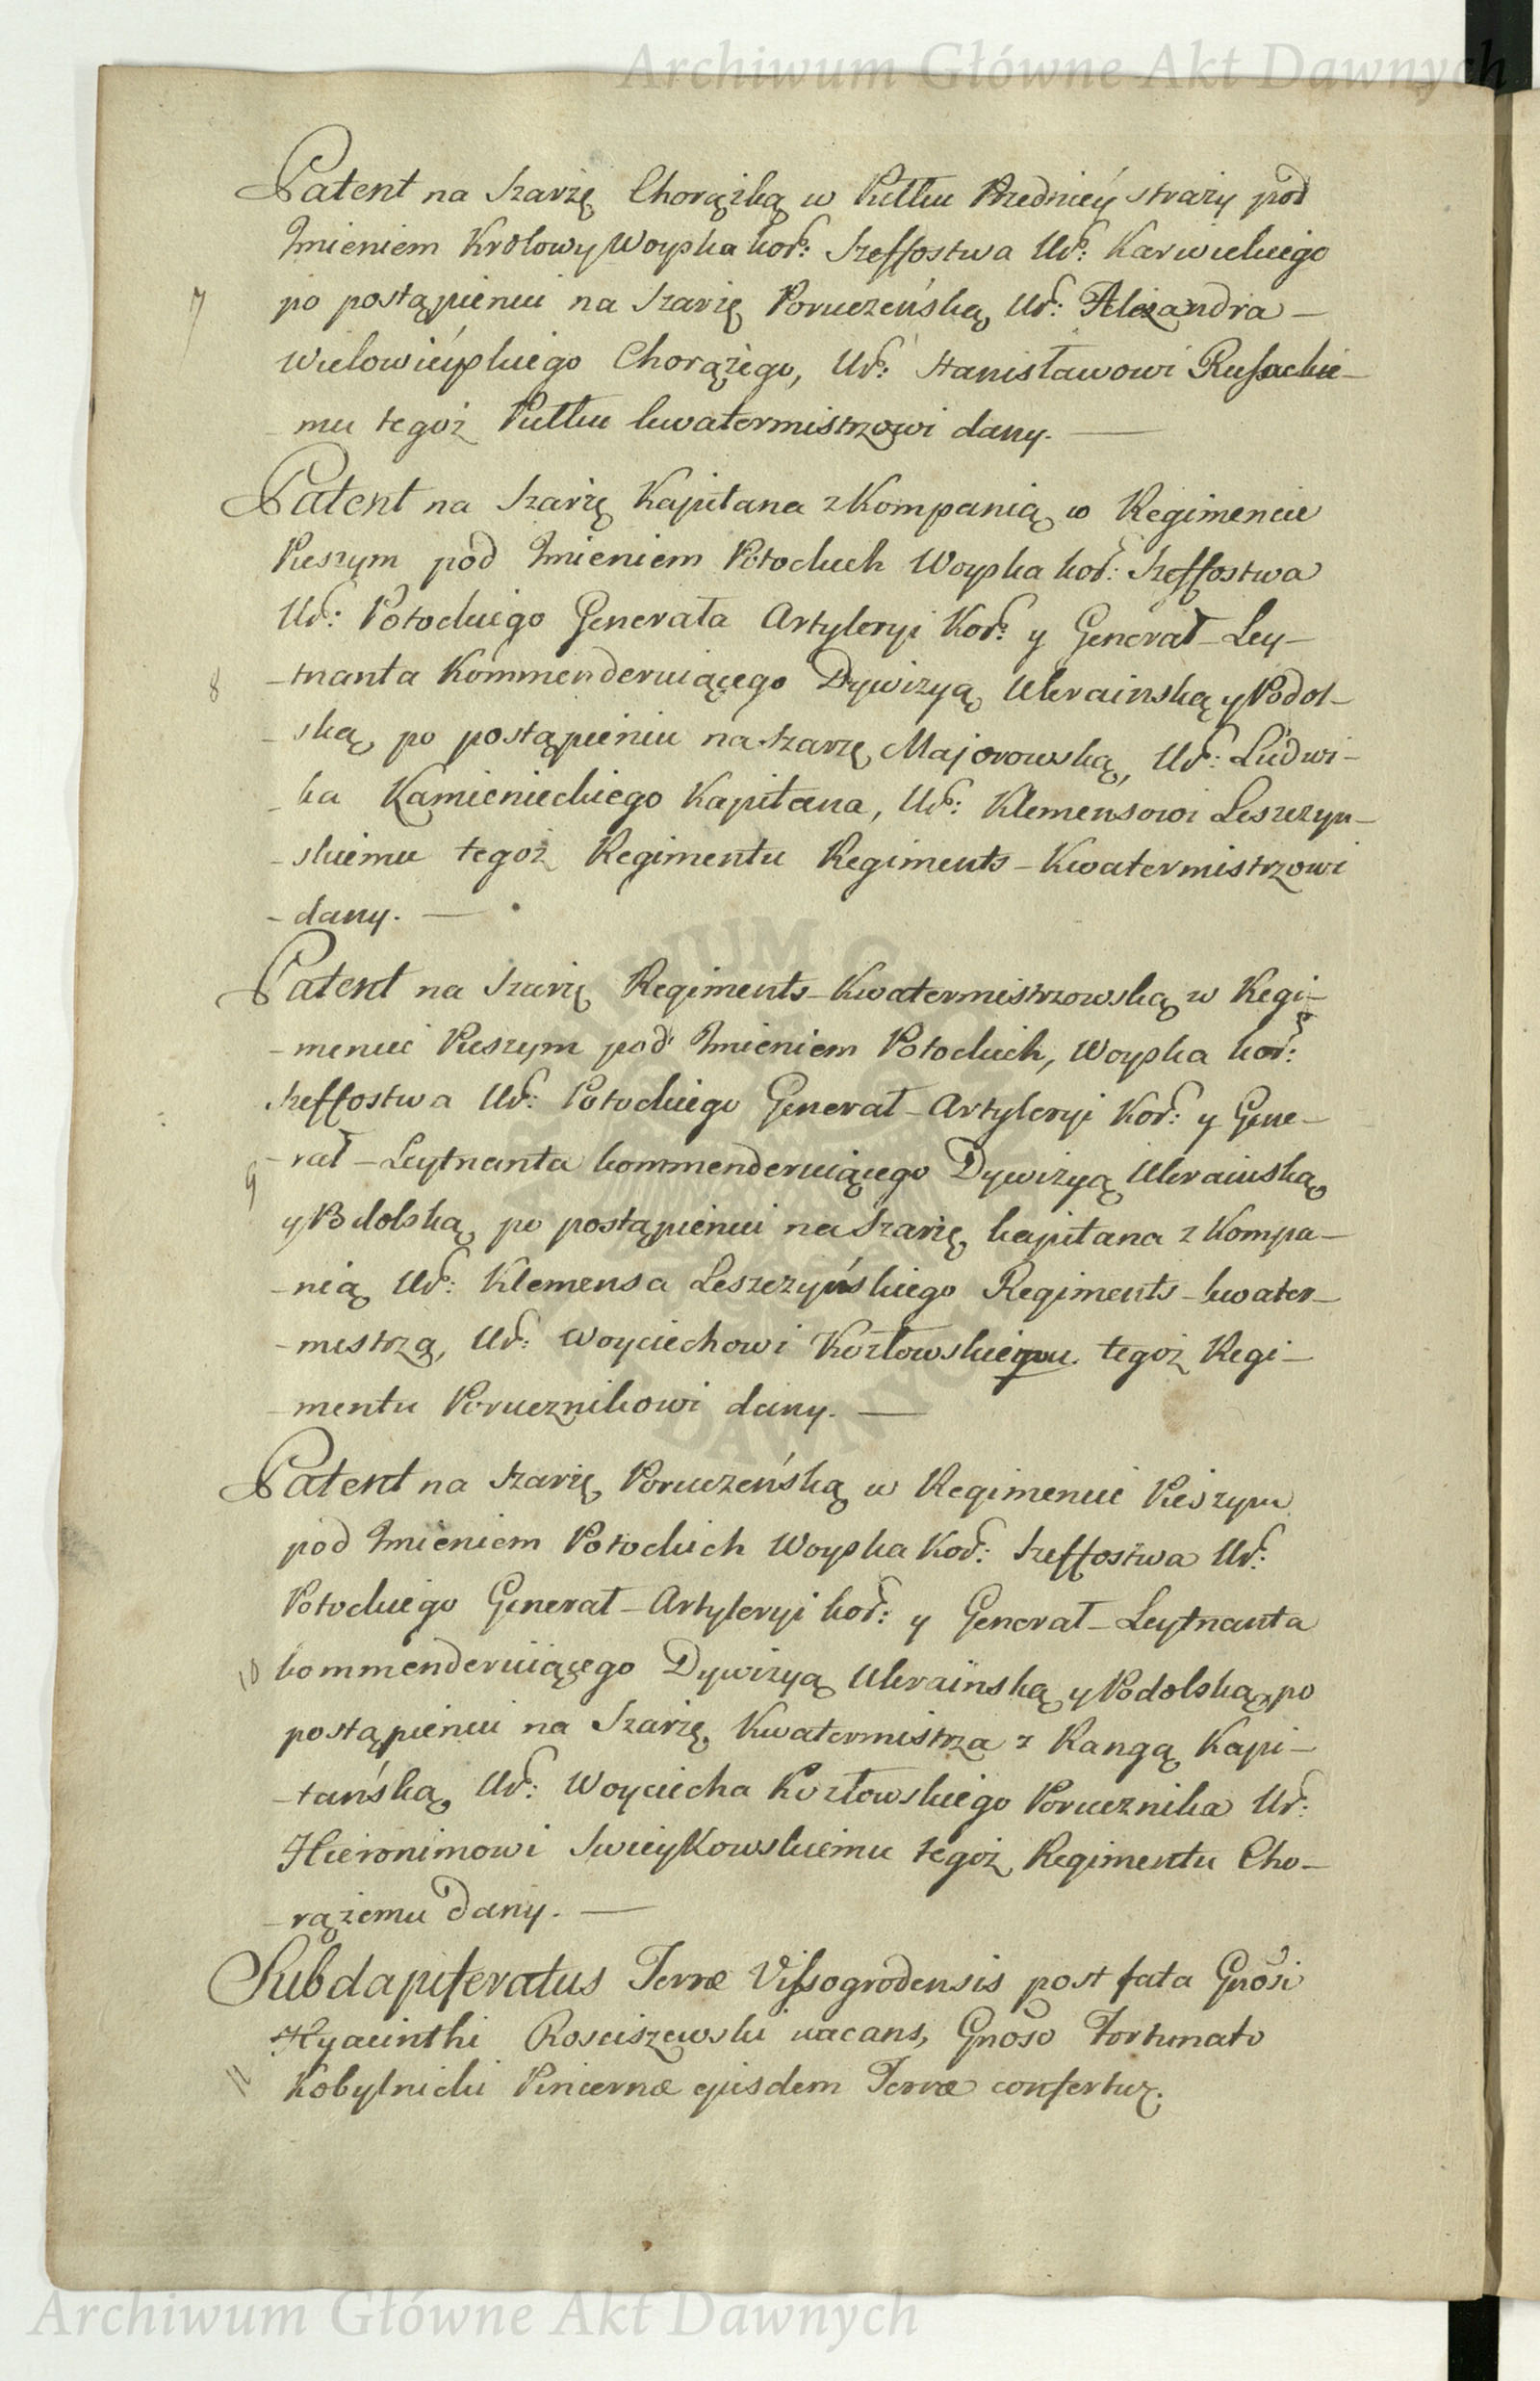 Archiwum Główne Akt Dawnych
Patent na Szarżę Chorązką w Pułku Przedniey straży pod
Imieniem Krolowy Woyska kor: Szeffostwa Ur: Karwickiego
7 po postąpieniu na Szarżę Poruczeńską, Ur: Alexandra –
Wielowieyskiego Chorążego, Ur: Stanisławowi Rusackie–
mu tegoż Pułku kwatermistrzowi dany. —
Patent na Szarżę Kapitana z Kompanią w Regimencie
Pieszym pod Imieniem Potockich Woyska kor: Szeffostwa
Ur: Potockiego Generała Artyleryi Kor: y Generał–Ley–
8 –tnanta Kommenderuiącego Dywizyą Ukrainską y Podol–
–ską, po postąpieniu na szarżę Majorowską, Ur: Ludwi–
–ka Kamienieckiego Kapitana, Ur: Klemensowi Leszczyn–
–skiemu tegoż Regimentu Regiments–Kwatermistrzowi
–dany. —
Patent na Szarżę Regiments–Kwatermistrzowską w Regi–
–mencie Pieszym pod Imieniem Potockich, Woyska kor:
Szeffostwa Ur: Potockiego Generał–Artyleryi Kor: y Gene–
9 –rał–Leytnanta kommenderuiącego Dywizyą Ukrainską
y Podolską po postąpieniu na Szarżę kapitana z Kompa–
–nią Ur: Klemensa Leszczyńskiego Regiments–kwater–
–mistrza, Ur: Woyciechowi Kozłowskiemu tegoż Regi–
–mentu Porucznikowi dany. —
Patent na Szarżę Poruczeńską w Regimencie Pieszym
pod Imieniem Potockich Woyska Kor: Szeffostwa Ur:
Potockiego Generał–Artyleryi kor: y Generał–Leytnanta
10 kommenderuiącego Dywizyą Ukrainską y Podolską, po
postąpieniu na Szarżę Kwatermistrza z Rangą Kapi–
–tańską, Ur: Woyciecha Kozłowskiego Porucznika Ur:
Hieronimowi Swieykowskiemu tegoż Regimentu Cho–
–rążemu dany. —
Subdapiferatus Terræ Vissogrodensis post fata Gnosi
Hyacinthi Rosciszewski vacans, Gnoso Fortunato
11 Kobylnicki Pincernæ ejusdem Terræ confertur.
Archiwum Główne Akt Dawnych